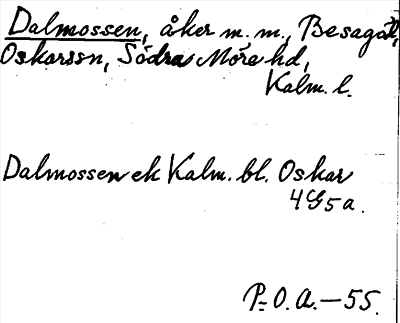 Dalmossen, åker m. m., Besagål,
Oskarssn, Södra Möre hd,
Kalm. l.
Dalmossen ek Kalm. bl. Oskar
4G5a.
P. O. A. – 55.